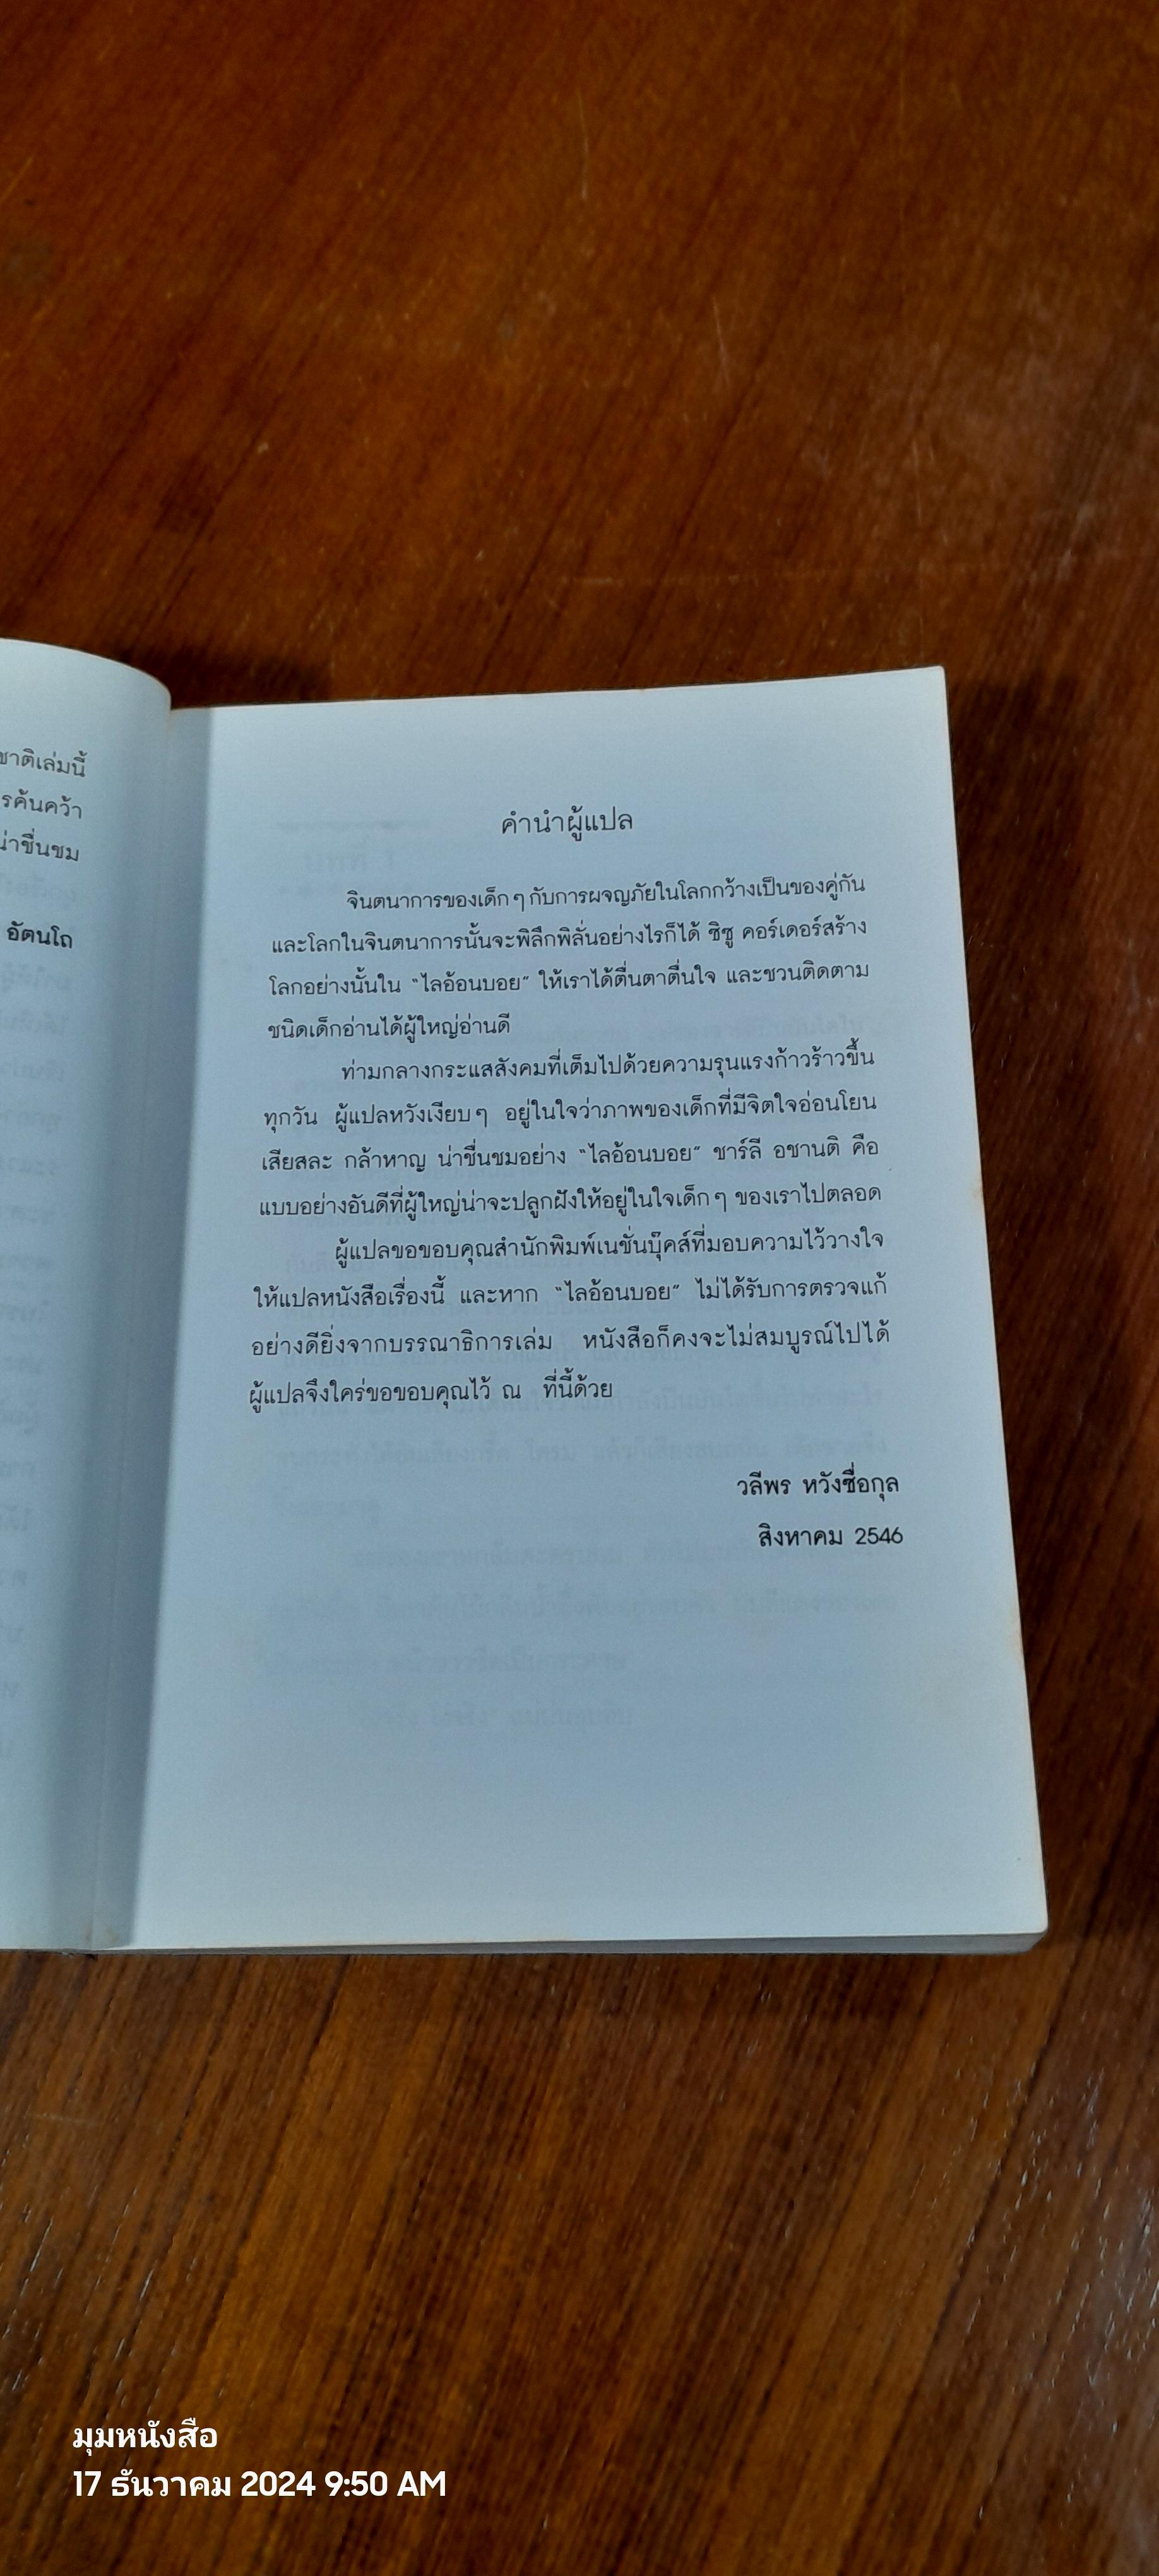 ชาติเล่มนี้
รค้นคว้า
น่าชื่นชม
อัตนโถ
คำนำผู้แปล
จินตนาการของเด็กๆ กับการผจญภัยในโลกกว้างเป็นของคู่กัน
และโลกในจินตนาการนั้นจะพิลึกพิลั่นอย่างไรก็ได้ ซิซู คอร์เดอร์สร้าง
โลกอย่างนั้นใน “ไลอ้อนบอย” ให้เราได้ตื่นตาตื่นใจ และชวนติดตาม
ชนิดเด็กอ่านได้ผู้ใหญ่อ่านดี
ท่ามกลางกระแสสังคมที่เต็มไปด้วยความรุนแรงก้าวร้าวขึ้น
ทุกวัน ผู้แปลหวังเงียบๆ อยู่ในใจว่าภาพของเด็กที่มีจิตใจอ่อนโยน
เสียสละ กล้าหาญ น่าชื่นชมอย่าง “ไลอ้อนบอย” ชาร์ลี อชานติ คือ
แบบอย่างอันดีที่ผู้ใหญ่น่าจะปลูกฝังให้อยู่ในใจเด็กๆ ของเราไปตลอด
ผู้แปลขอขอบคุณสำนักพิมพ์เนชั่นบุ๊คส์ที่มอบความไว้วางใจ
ให้แปลหนังสือเรื่องนี้ และหาก “ไลอ้อนบอย” ไม่ได้รับการตรวจแก้
อย่างดียิ่งจากบรรณาธิการเล่ม หนังสือก็คงจะไม่สมบูรณ์ไปได้
ผู้แปลจึงใคร่ขอขอบคุณไว้ ณ ที่นี้ด้วย
วลีพร หวังซื่อกุล
สิงหาคม 2546
มุมหนังสือ
17 ธันวาคม 2024 9:50 AM